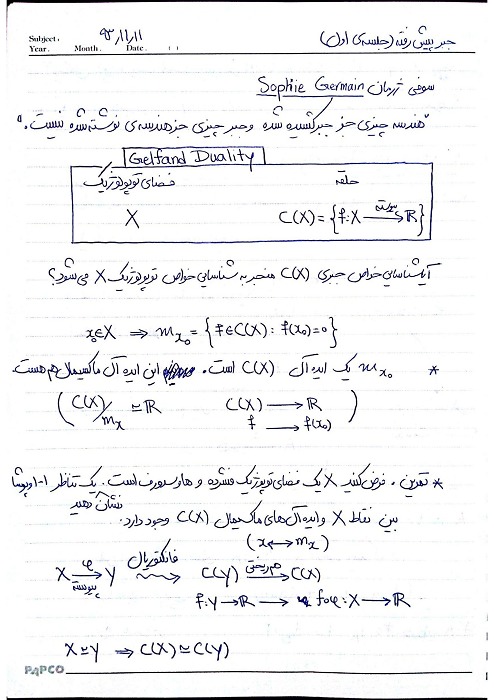 Subject:
Year. Month. Date. ( )
۹۳/۱۱/۱۱
جبر پیش رفته (جلسه‌ی اول)
سوفی ژرمان Sophie Germain
"هندسه چیزی جز جبر کشیده شده و جبر چیزی جز هندسه‌ی نوشته شده نیست."
Gelfand Duality
فضای توپولوژیک حلقه
X C(X) = {f: X پیوسته→ ℝ}
آیا شناسایی خواص جبری C(X) منجر به شناسایی خواص توپولوژیک X می‌شود؟
x₀∈X ⇒ m_{x₀} = {f∈C(X) : f(x₀)=0}
* m_{x₀} یک ایده‌آل C(X) است. این ایده‌آل ماکسیمال هم هست.
(C(X)/m_x ≃ ℝ C(X) → ℝ
f → f(x₀))
* تمرین. فرض کنید X یک فضای توپولوژیک فشرده و هاوسدورف است. یک تناظر ۱-۱ و پوشا
نشان دهید
بین نقاط X و ایده‌آل‌های ماکسیمال C(X) وجود دارد.
(x ↔ m_x)
X φ→ Y پیوسته فانکتوریال ⇝ C(Y) همریختی→ C(X)
f: Y → ℝ → foφ: X → ℝ
X ≃ Y ⇒ C(X) ≃ C(Y)
PAPCO